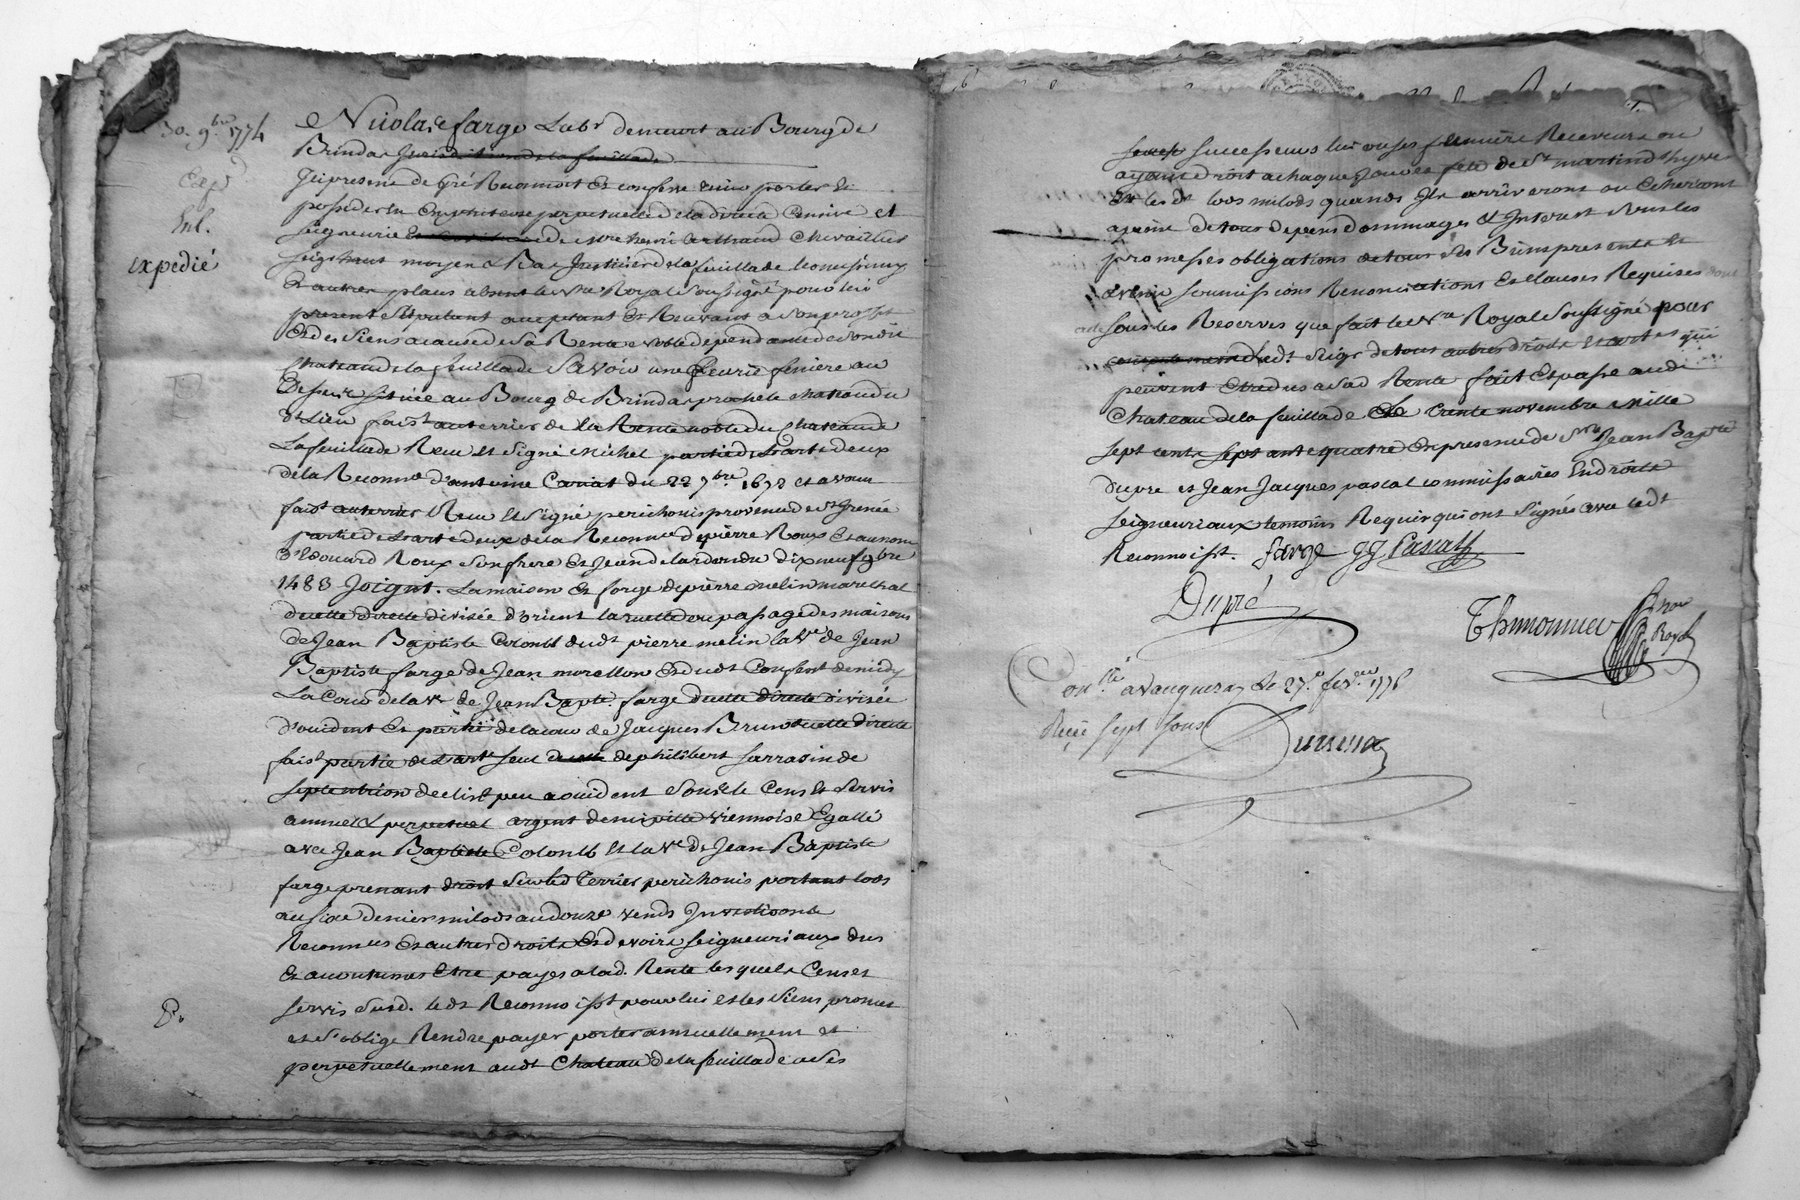 30. 9bre 1774
Exp.
inl.
expedié
Nicolas farge Labr demeurt au Bourg de
Brindas
Jci present de Gré Reconnoit Et confesse tenir porter Et
posseder En Emphiteose perpetuelle de la directe Censive et
seigneurie de Mre henri Chevallier
seigr haut moyen & Bas Justicier de la feuillade
Et autres places absent le Nre Royal Soussigné pour lui
present Stipulant acceptant Et Recevant a son proffit
Et des Siens a cause de Sa Rente noble dependante de Son dit
Chateau de la feuillade Savoir une feniere au
Dessus située au Bourg de Brindas proche le chateau du
dt Lieu faist au terrier de la Rente noble du Chateau de
La feuillade Reçu Et Signé Michel partie de L'art. deux
de la Reconnce d'antoine Cariat du 22 7bre 1672 et avant
faist au terrier Reçu Et Signé perichonis provenu de St Irenée
partie de L'art. deux de la Reconnce de pierre Roux Et au nom
D'Edouard Roux Son frere Et Jean de lardendu dix neuf 9bre
1488 Joignt. La maison Et forge de pierre melin marechal
duette directe divisée d'orient la ruette ou passage des maisons
de Jean Baptiste Colomb dudt pierre melin la Ve de Jean
Baptiste farge de Jean morellon Et dudt Confest de midy
La Cour de la Ve de Jean Bapte. farge duette directe divisée
d'occident Et partie de la cour de Jacques Brun duette directe
faist partie de L'art. seul de philibert Sarrasin de
septentrion declist peu a occident Sous le Cens Et Servis
annuel & perpetuel argent demi pitte viennoise Egallé
avec Jean Baptiste Colomb Et la Ve de Jean Baptiste
farge prenant droit Sur led Terrier perichonis portant lods
au sixe denier milods au douze vends Investisons
Reconnces Et autres droits Et devoirs seigneuriaux dus
Et accoutumés Etre payés a lad. Rente lesquels Cens et
P.
servis Susd. ledt Reconnoisst pour lui et les Siens promet
et s'oblige Rendre payer porter annuellement et
perpetuellement audt Chateau de la feuillade a Ses
successeurs lui ou ses fermiers Receveurs ou
ayants droit a chaque jour de fete de St martin d'hyver
Et les dt lods milods quands Ils arriveront ou Echerront
a peine de tous depens dommages & Interest sous les
promesses obligations de tous Ses Biens presents Et
avenir soumissions Renonciations Et clauses Requises
sous les Reserves que fait le Nre Royal Soussigné pour
ledt Seigr de tous autres droits Et arts qui
peuvent Etre dus a lad Rente fait Et passé audi
Chateau de la feuillade Le trente novembre Mille
sept cents sept ante quatre En presence de Sr Jean Bapte
dupre et Jean Jacques pascal commissaires En droits
seigneuriaux temoins Requis qui ont Signés avec ledt
Reconnoisst. farge JJ Pascal
Dupré
Thimonnier Nore Royal
Conlé a Vaugneray Le 27e fever 1775
Reçu sept sous